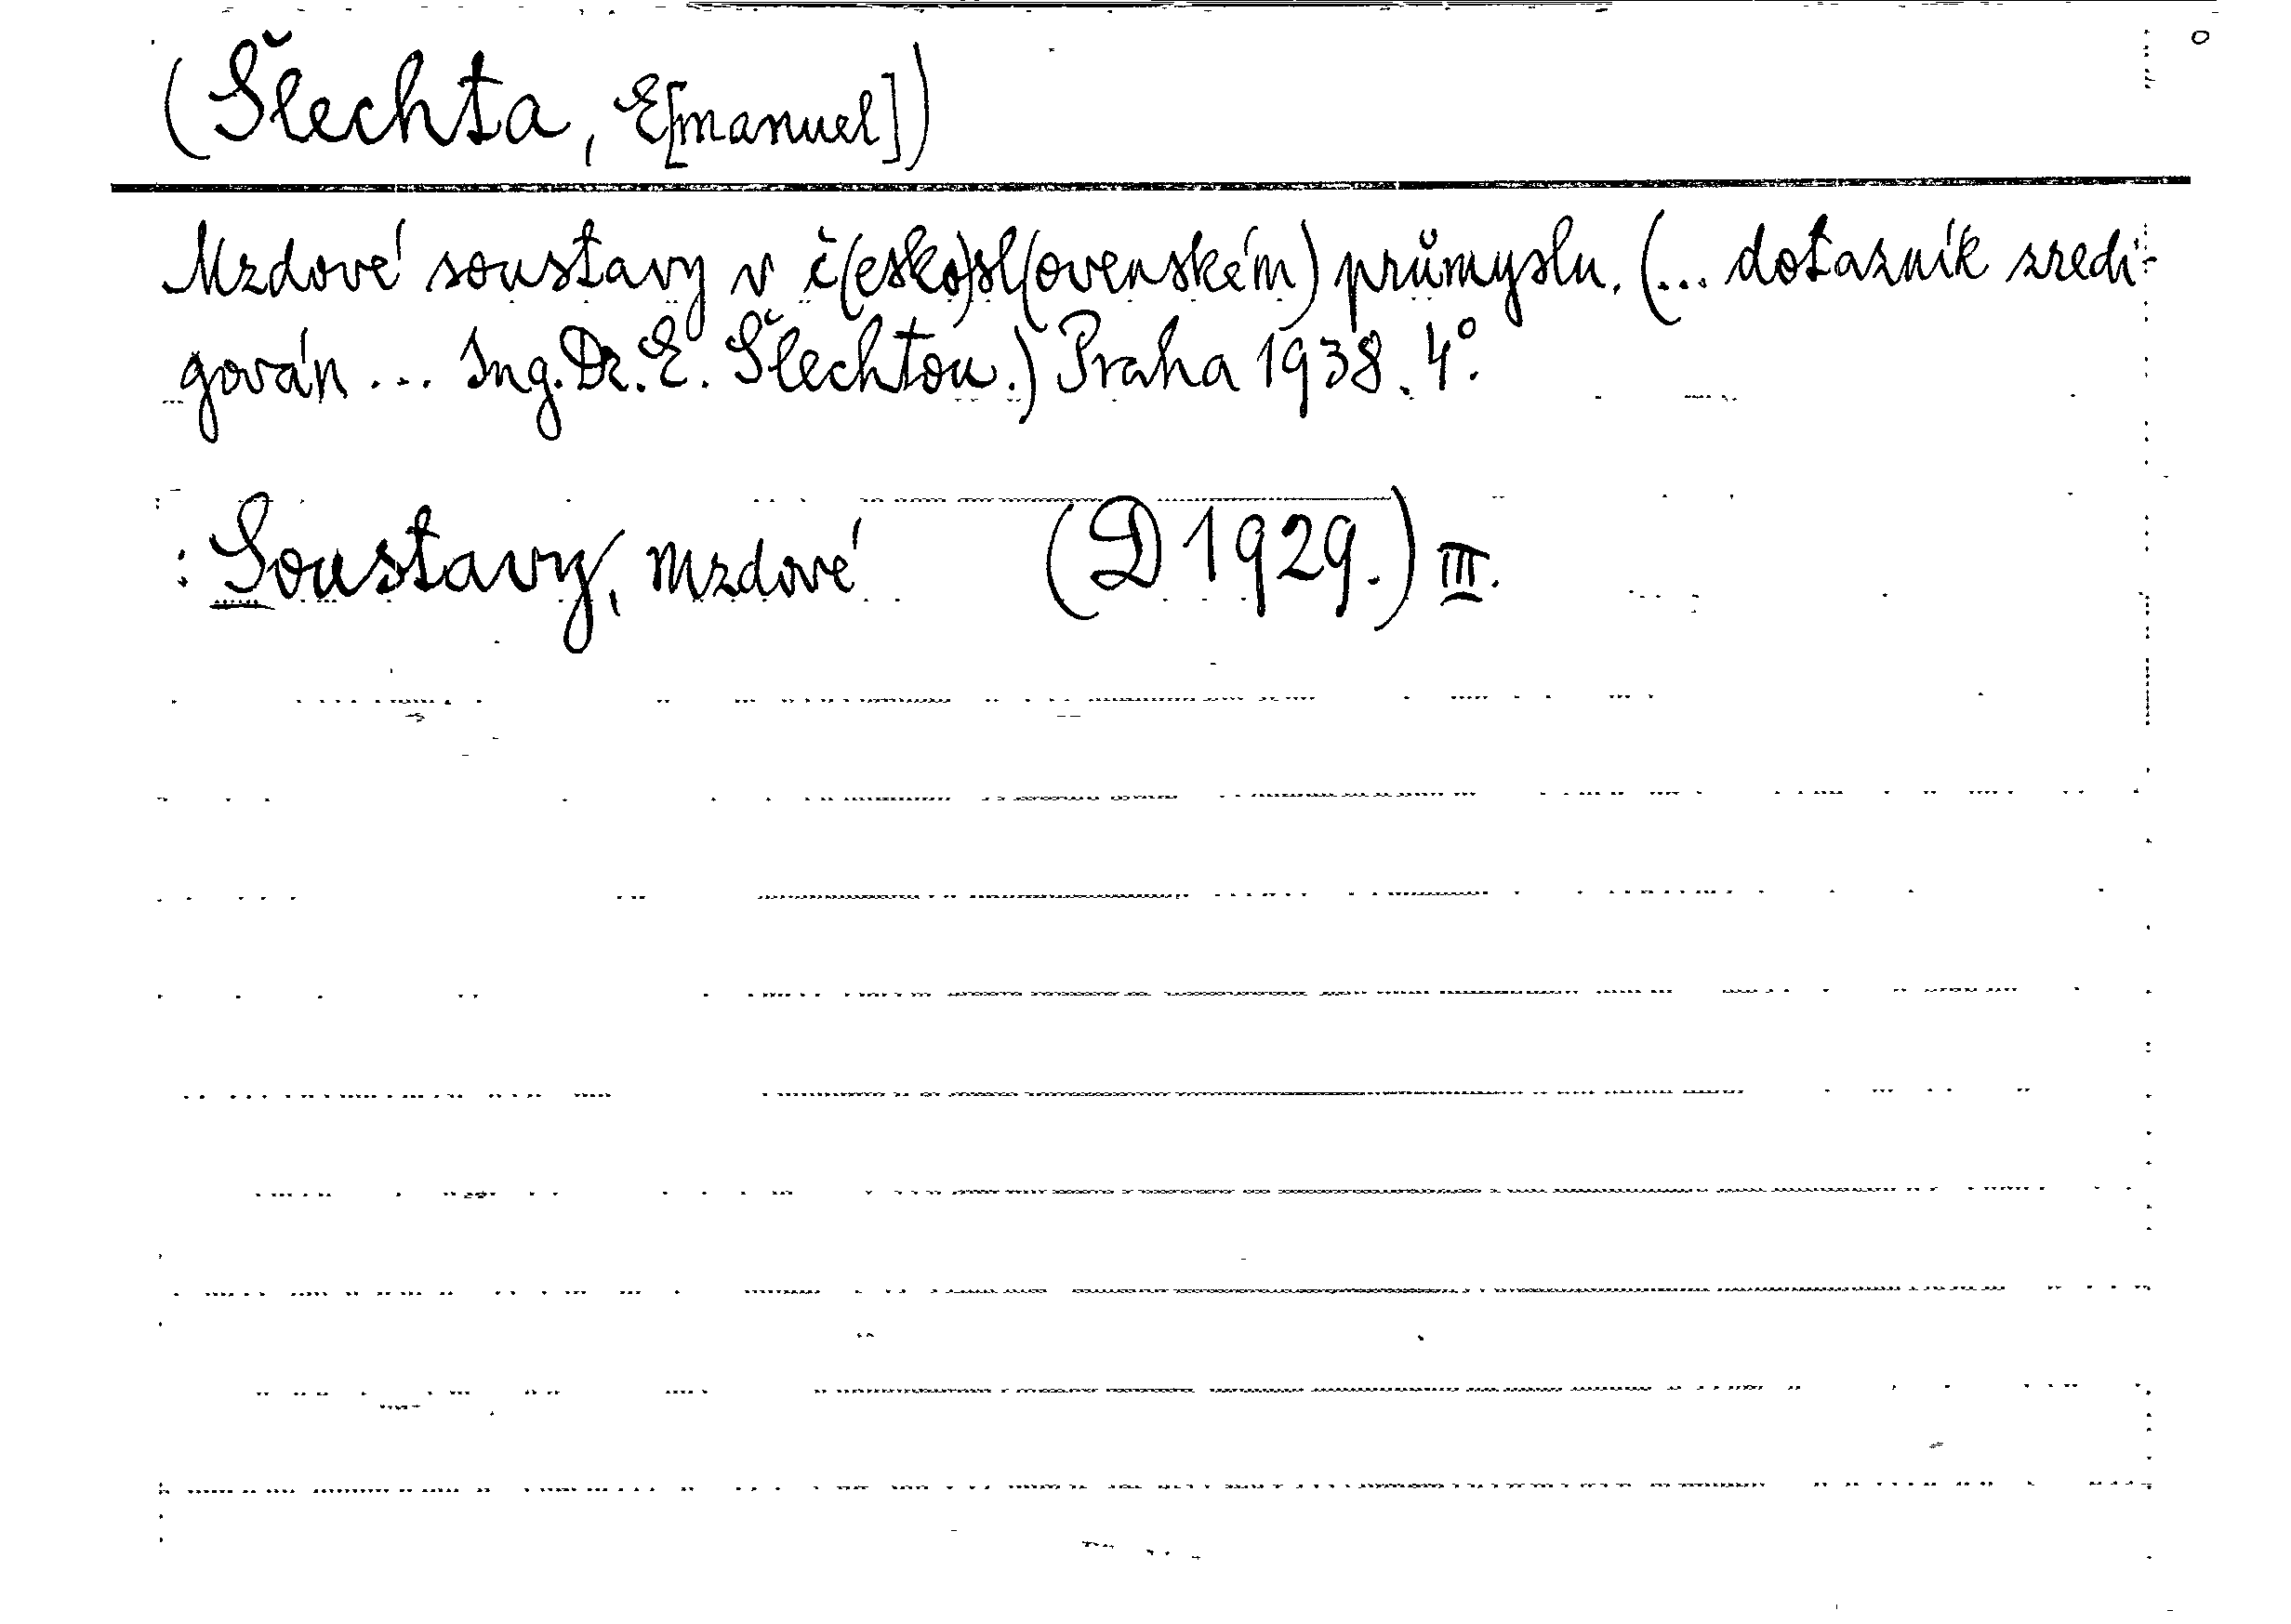 (Šlechta, E[manuel])
Mzdové soustavy v č(esko)sl(ovenském) průmyslu. (... dotazník zredi-
gován ... Ing. Dr. E. Šlechtou.) Praha 1938. 4°.
: Soustavy, mzdové (D 1929.) III.